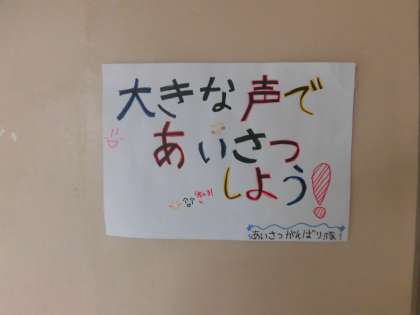 大きな声で
あいさつ
しよう!
あいさつがんばり隊